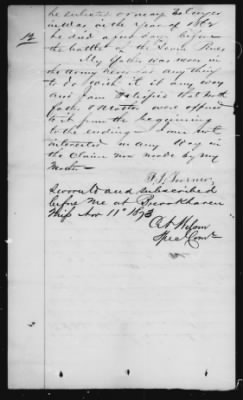 he enlisted
in war in the year of 1862
he died a few days before
12 the battle of the Seven Pines
My father was never in
the Army never had any thing
to do with it any way
and I am satisfied that both
father & Mother were opposed
to it from the beginning
to the ending I am not
interested in any way in
the Claim now made by my
Mother
Sworn to and subscribed
before me at Brookhaven
Miss Nov 11" 1873
Spec Comr